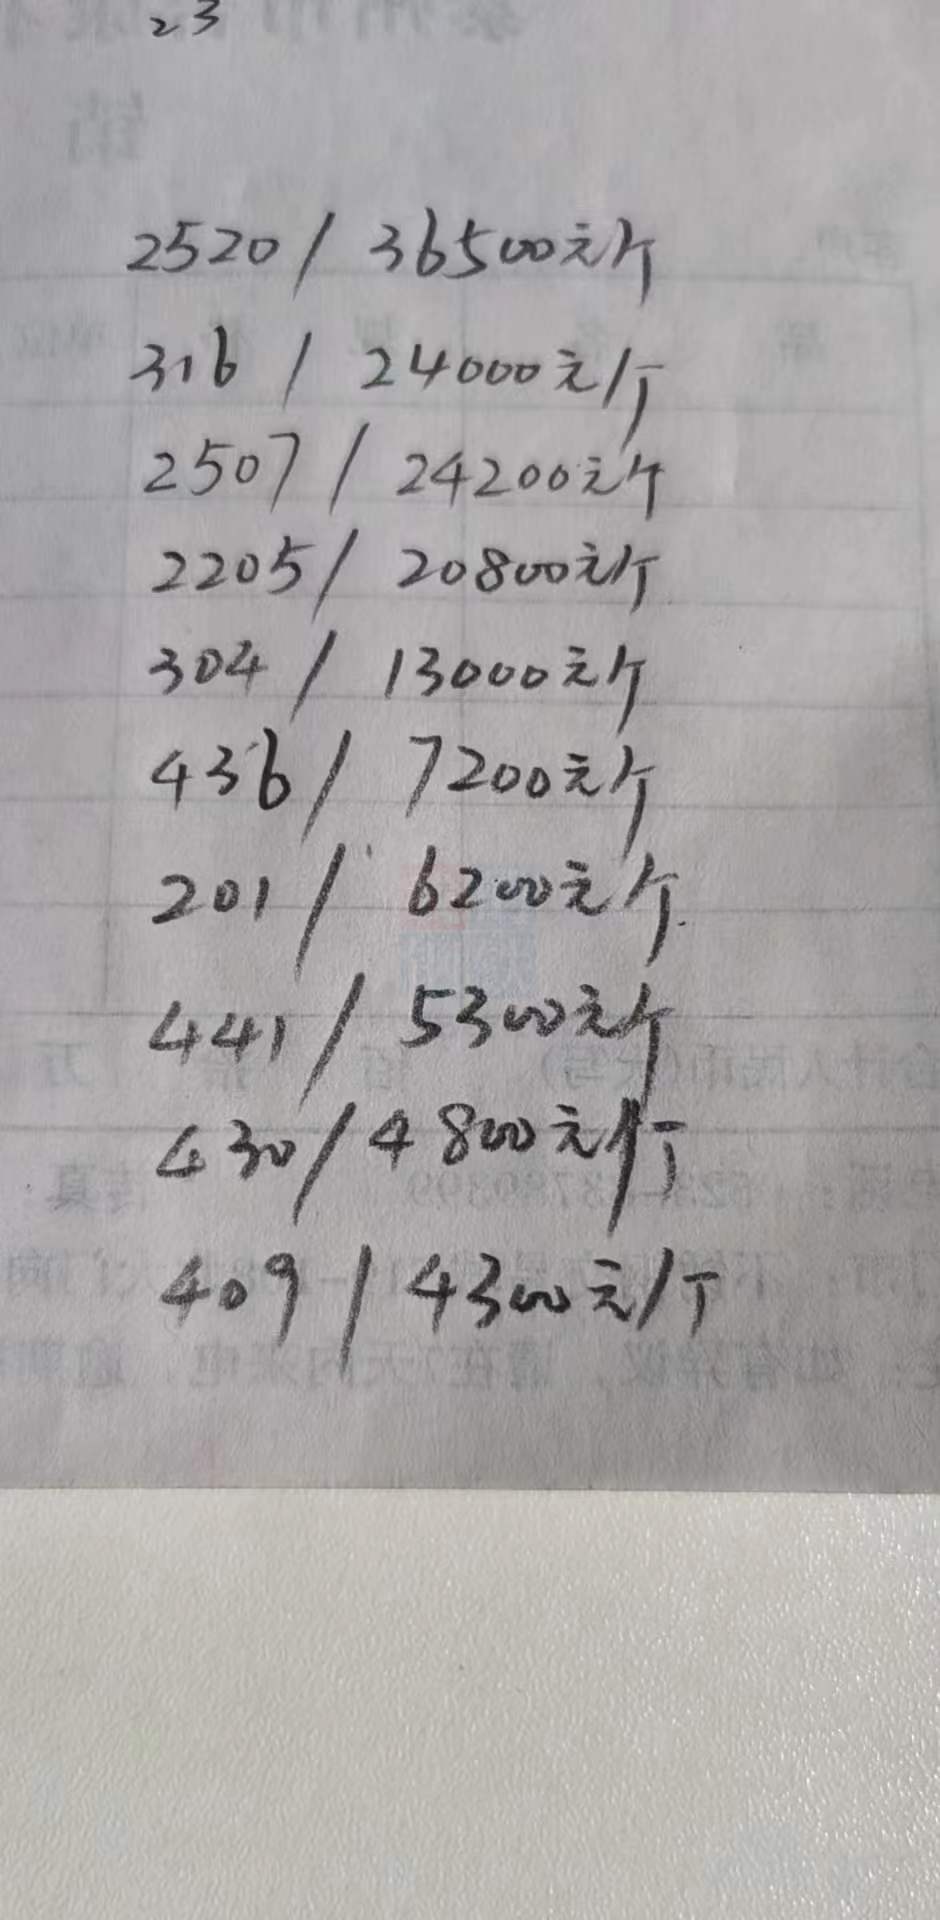 23
2520/36500元/T
316/24000元/T
2507/24200元/T
2205/20800元/T
304/13000元/T
436/7200元/T
201/6200元/T
441/5300元/T
430/4800元/T
409/4300元/T